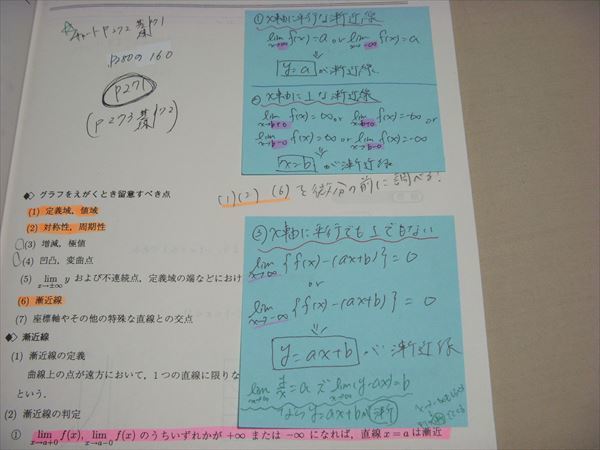 ☆チャート P272 基171
P280の160
P271
(P273 基172)
① x軸に平行な漸近線
lim x→∞ f(x)=a or lim x→-∞ f(x)=a
⇓
y=a が漸近線
② x軸に⊥な漸近線
lim x→b+0 f(x)=∞ or lim x→b+0 f(x)=-∞ or
lim x→b-0 f(x)=∞ or lim x→b-0 f(x)=-∞
x=b が漸近線
(1)(2) (6) を微分の前に調べる!
◆ グラフをえがくとき留意すべき点
(1) 定義域,値域
(2) 対称性,周期性
(3) 増減,極値
(4) 凹凸,変曲点
(5) lim x→±∞ y および不連続点,定義域の端などにおけ
(6) 漸近線
(7) 座標軸やその他の特殊な直線との交点
◆ 漸近線
(1) 漸近線の定義
曲線上の点が遠方において,1つの直線に限りな
という.
(2) 漸近線の判定
① lim x→a+0 f(x), lim x→a-0 f(x) のうちいずれかが +∞ または -∞ になれば,直線 x=a は漸近
③ x軸に平行でも⊥でもない
lim x→∞ {f(x)-(ax+b)}=0
or
lim x→-∞ {f(x)-(ax+b)}=0
⇓
y=ax+b が漸近線
lim x→∞ y/x=a で lim x→∞ (y-ax)=b
なら y=ax+b が漸近